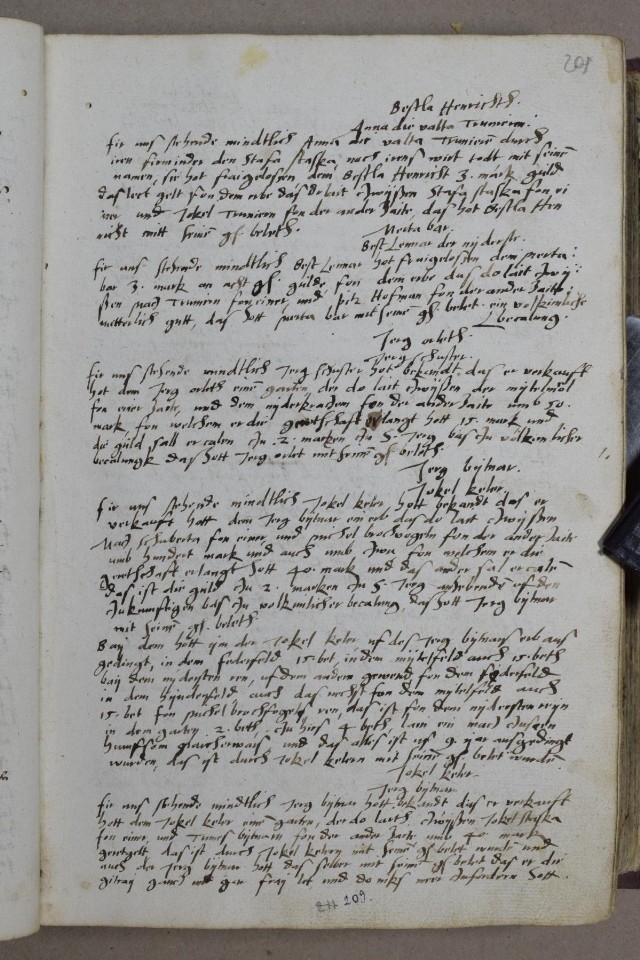 201
Bestla Henrichth.
Anna die valta Trumerin:
fir uns stehende mindtlich Anna die valta Trumerin durch
iren firminder den Stafa Staska, noch irens wirt todt mit seinē
namen, sie hot fraigelossen dem Bestla Henricht 3. mark guld
das lect gelt von dem erbe das do lait czwyssen Stafa Staska fon ei
ner und Jokel Trumern fon der ander saite, das hot Bestla Hen
richt mitt seinē gh. beleth.
Merta bar.
Best Lemar der nyderste.
fir uns stehende mindtlich Best Lemar hot fraigelossen dem merta:
bar 3. mark an acht gh. gulde, fon dem erbe das do lait czwy:
ssen Mach Trumern fon einer, und Petz Hofman fon der ander saite
mitterlich gutt, das hott merta bar mit seinē gh. belet. ein volkimliche
becalung.
Jerg orleth.
Jerg Schuster.
fir uns stehende mindtlich Jerg schuster hot bekandt, das er verkauft
hot dem Jerg orleth einē garten, der do lait czwyssen der mytelmöl
fon einer saite, und dem nyderkrachem fon der ander saite umb 50.
mark, fon welchem er die gerethschaft erlangt hott 15. mark und
die guld sall er calen czu .2. marken czu S. Jerg bas czu volkimlicher
becalungk das hott Jerg orlet mit seinē gh. beleth.
Jerg bytnar.
Jokel keler.
fir uns stehende mindtlich Jokel keler hott bekandt das er
verkauft hott dem Jerg bytnar ein erb das do lait czwyssen
Mach schuberta fon einer, und michel brochvogeln fon der ander saite
umb hundert mark und auch umb czwu fon welchem er die
gerethschaft erlangt hott 40. mark und das ander sal er calen
das ist die guld czu 2. marken czu S. Jerg anhebende of den
czukunftigen bas czu volkimlicher becalung, das hott Jerg bytnar
mit seinē gh. beleth.
Bay dem hott im der Jokel keler uf des Jerg bytnars erb aus
gedingt, in dem foderfeld 15. bet, in dem mytelfeld auch 15. beth
bay dem nydersten ren, uf dem andern gewend fon dem foderfeld
in dem hynderfeld auch das nechst fon dem mytelfeld auch
15. bet fon michel brochfogels ren, das ist fon dem nydersten reyn
in dem garten .2. beth, czu hirs 4. beth lain ein mach czuseen
und das alles ist uf 9. jar ausgedingt
wurden, das ist durch Jokel kelern mit seinē gh. belet wurdē
Jokel keler.
Jerg bytnar.
fir uns stehende mindtlich Jerg bytnar hott bekandt das er verkauft
hott dem Jokel keler einē garten, der do laith czwyssen Jokel staska
fon einer, und Simes bytnarn fon der ander saite umb 40. mark
geretgelt, das ist durch Jokel kelern mit seinē gh. belet wurdē und
auch der Jerg bytnar hott das selber mit seinē gh. belet das er die
gancz und gar fray let und do niks mere czufodern hott.
109.